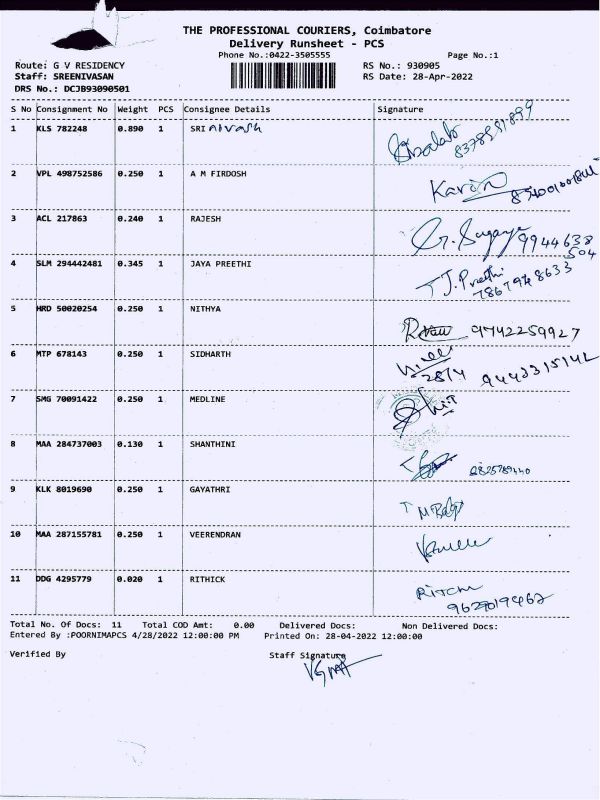 THE PROFESSIONAL COURIERS, Coimbatore
Delivery Runsheet - PCS
Phone No.:0422-3505555
Page No.:1
Route: G V RESIDENCY
RS No.: 930905
Staff: SREENIVASAN
RS Date: 28-Apr-2022
DRS No.: DCJB93090501
S No Consignment No Weight PCS Consignee Details Signature
1 KLS 782248 0.890 1 SRI
2 VPL 498752586 0.250 1 A M FIRDOSH
3 ACL 217863 0.240 1 RAJESH
9944638
504
4 SLM 294442481 0.345 1 JAYA PREETHI J. Preethi
5 HRD 50020254 0.250 1 NITHYA 9742259927
6 MTP 678143 0.250 1 SIDHARTH
28/4
7 SMG 70091422 0.250 1 MEDLINE
8 MAA 284737003 0.130 1 SHANTHINI
9 KLK 8019690 0.250 1 GAYATHRI
10 MAA 287155781 0.250 1 VEERENDRAN
11 DDG 4295779 0.020 1 RITHICK
Total No. Of Docs: 11 Total COD Amt: 0.00 Delivered Docs: Non Delivered Docs:
Entered By :POORNIMAPCS 4/28/2022 12:00:00 PM Printed On: 28-04-2022 12:00:00
Verified By Staff Signature